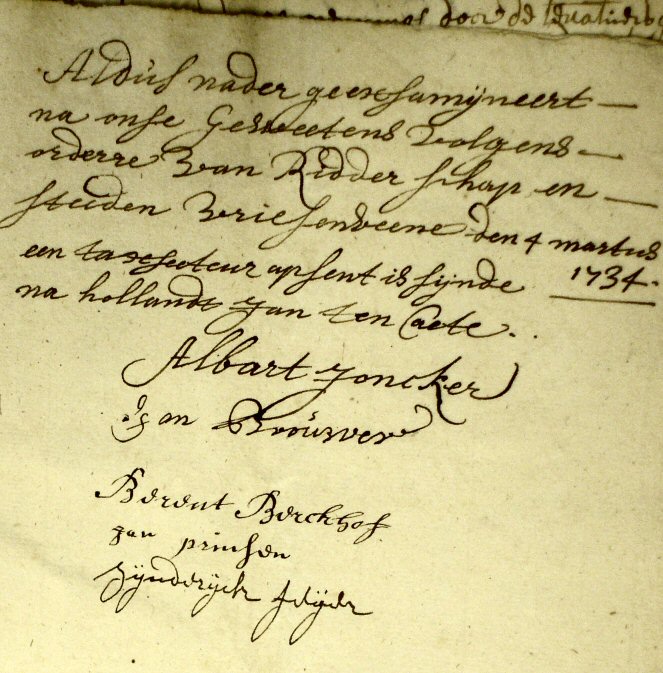 door de
Aldus nader geexsamijneert
na onse Gesweetens volgens
orderre van Ridder schap en
steeden vriesenveene den 4 martius
1734.
een taxseeteur apsent is sijnde
na hollandt Jan ten Caete.
Albart Joncker
Jan Brouwer
Berent Berckhof
Jan prinsen